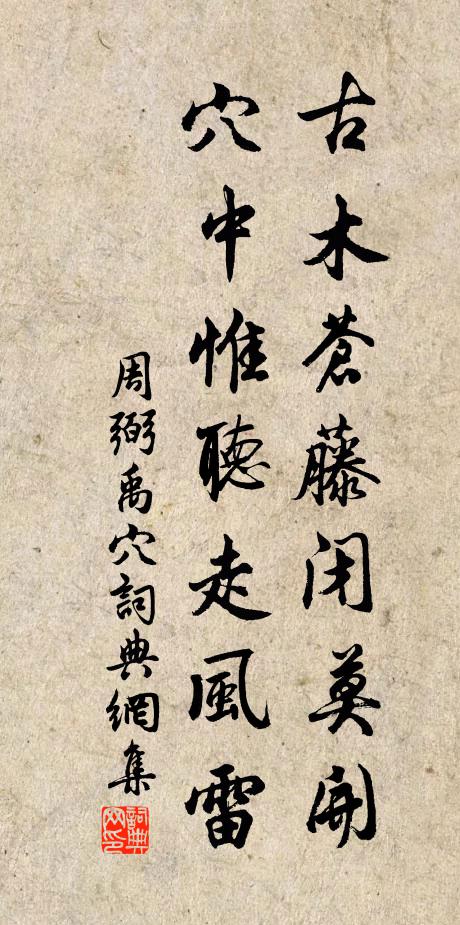 古木蒼藤閉莫開
穴中惟聽走風雷
周弼禹穴詞典網集
詞典网印